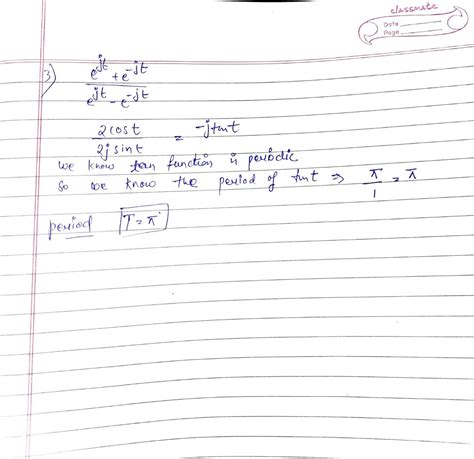 classmate
Date
Page
3) e^jt + e^-jt
e^jt - e^-jt
2cost / 2j sint = -jtant
we know tan function is periodic
so we know the period of tant ⇒ π/1 = π
period T = π